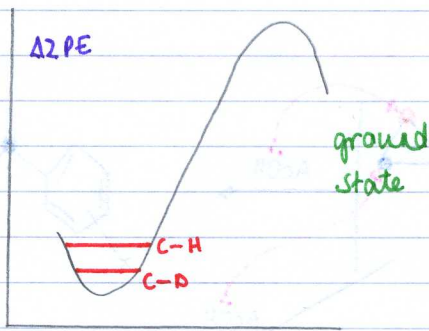 ΔZPE
ground
state
C-H
C-D